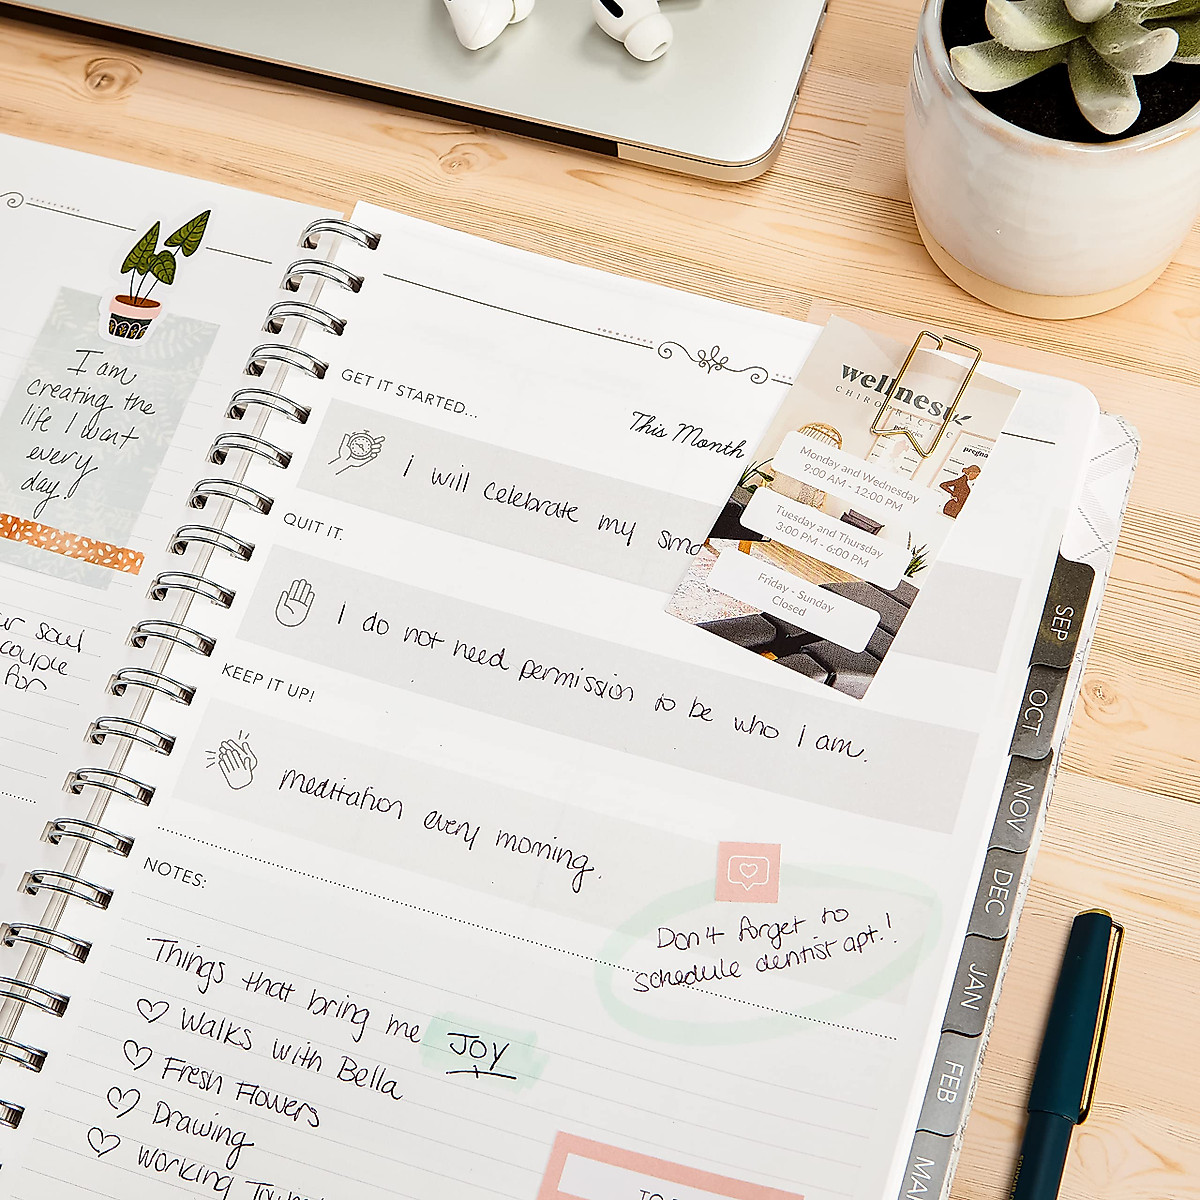 I am
creating the
life I want
every
day!
soul
couple
for
GET IT STARTED...
This Month
I will celebrate my
QUIT IT.
I do not need permission to be who I am.
KEEP IT UP!
meditation every morning.
NOTES:
Things that bring me JOY
Walks with Bella
Fresh Flowers
Drawing
Working
Don't forget to
schedule dentist apt.!
wellness
CHIROPRACTIC
pediatrics
Monday and Wednesday
9:00 AM - 12:00 PM
Tuesday and Thursday
3:00 PM - 6:00 PM
Friday - Sunday
Closed
SEP
OCT
NOV
DEC
JAN
FEB